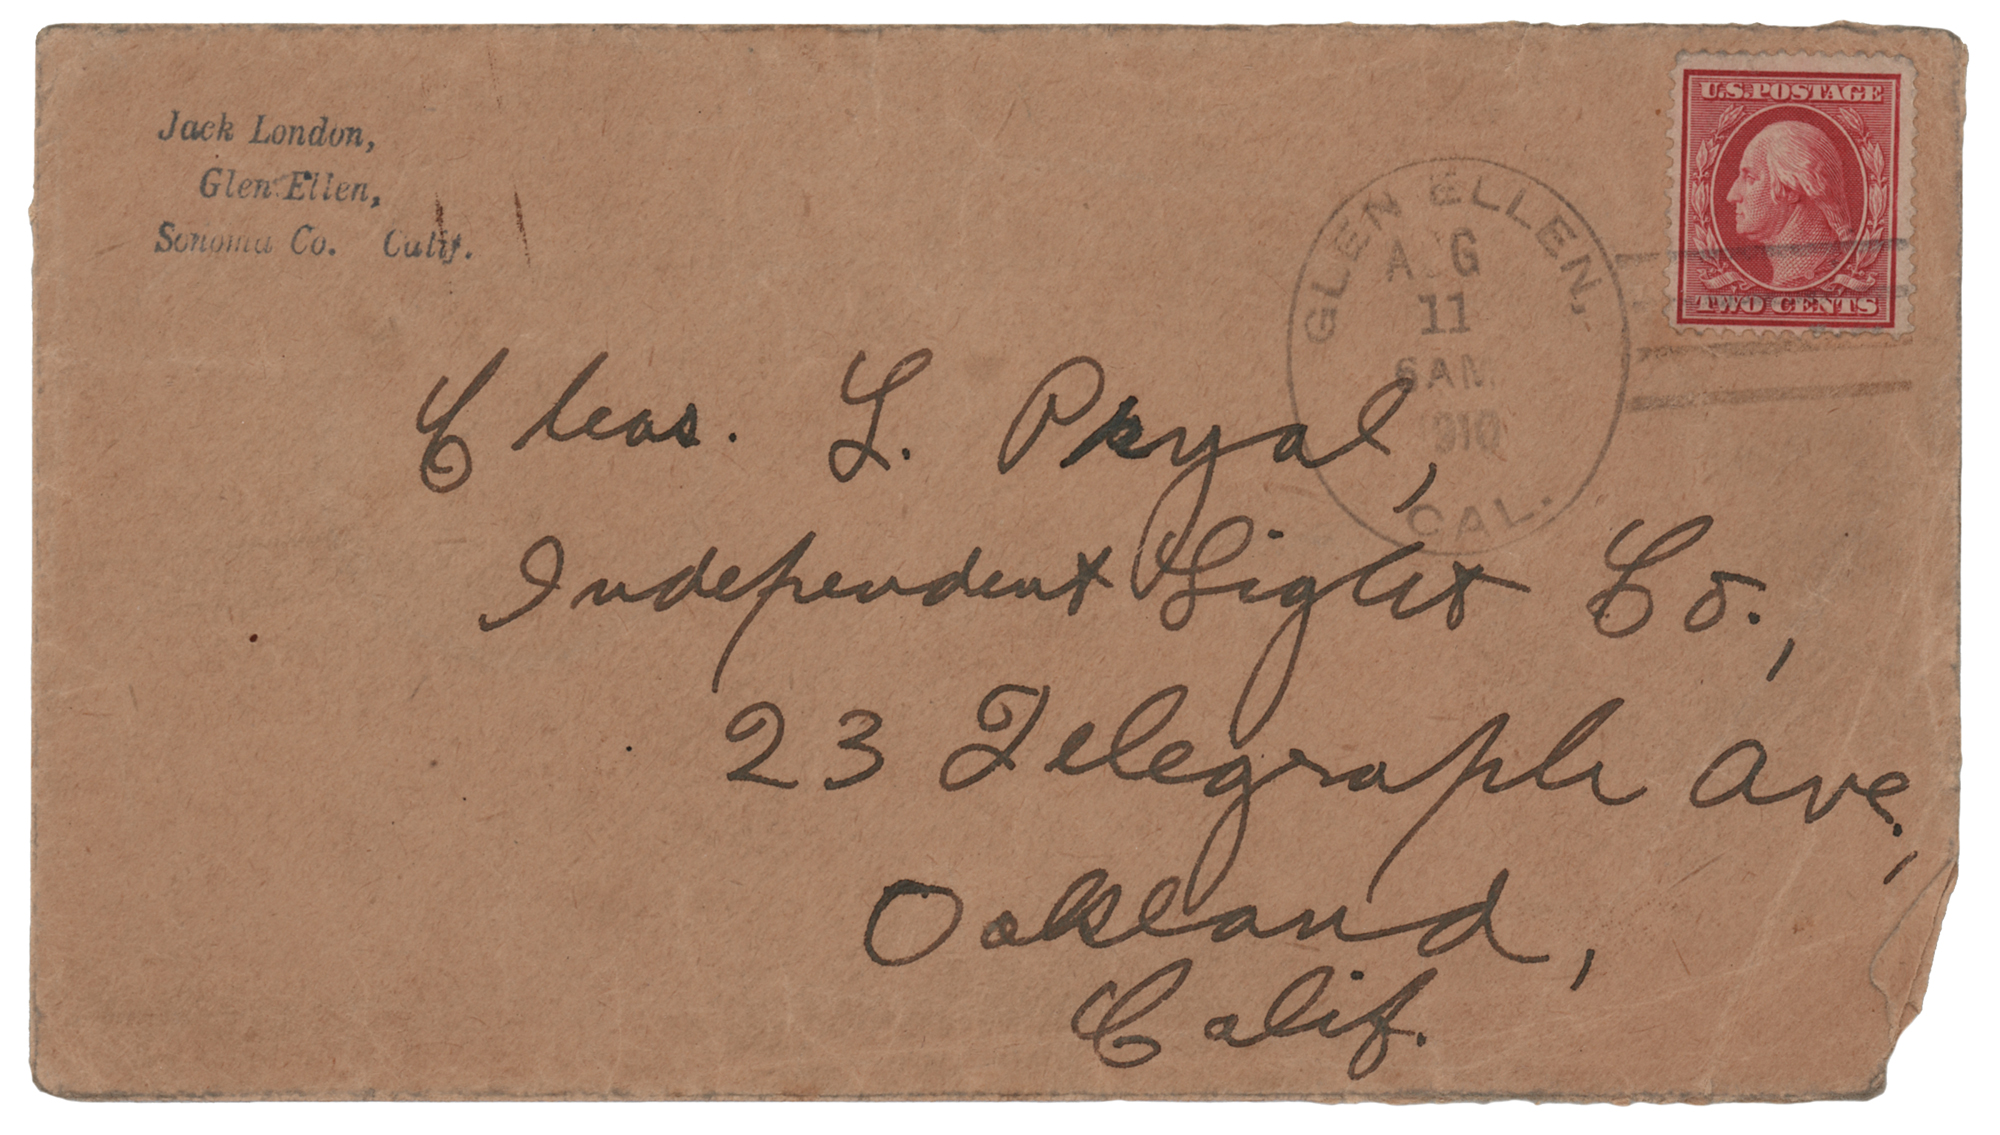 Jack London,
Glen Ellen,
Sonoma Co. Calif.
U.S. POSTAGE
TWO CENTS
GLEN ELLEN,
AUG
11
6 AM
1910
CAL.
Chas. L. Pryal,
Independent Light Co.,
23 Telegraph Ave.,
Oakland,
Calif.